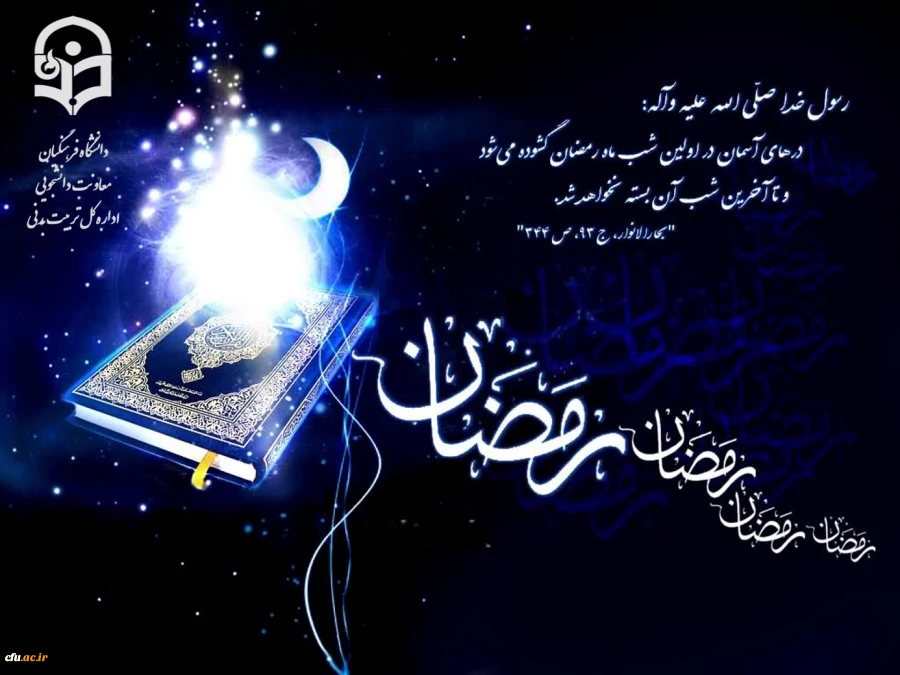 رسول خدا صلّی الله علیه وآله:
درهای آسمان در اولین شب ماه رمضان گشوده می‌شود
و تا آخرین شب آن بسته نخواهد شد.
"بحارالانوار، ج ۹۳، ص ۳۴۴"
دانشگاه فرهنگیان
معاونت دانشجویی
اداره کل تربیت بدنی
رمضان
رمضان
رمضان
رمضان
cfu.ac.ir